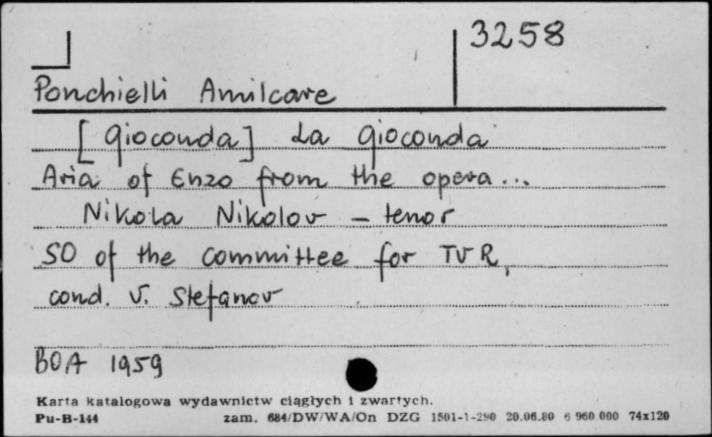 3258
Ponchielli Amilcare
[Gioconda] La Gioconda
Aria of Enzo from the opera...
Nikola Nikolov - tenor
SO of the committee for TVR,
cond. V. Stefanov
BOA 1959
Karta katalogowa wydawnictw ciągłych i zwartych.
Pu-B-144 zam. 684/DW/WA/On DZG 1501-1-290 20.06.80 6 960 000 74x120